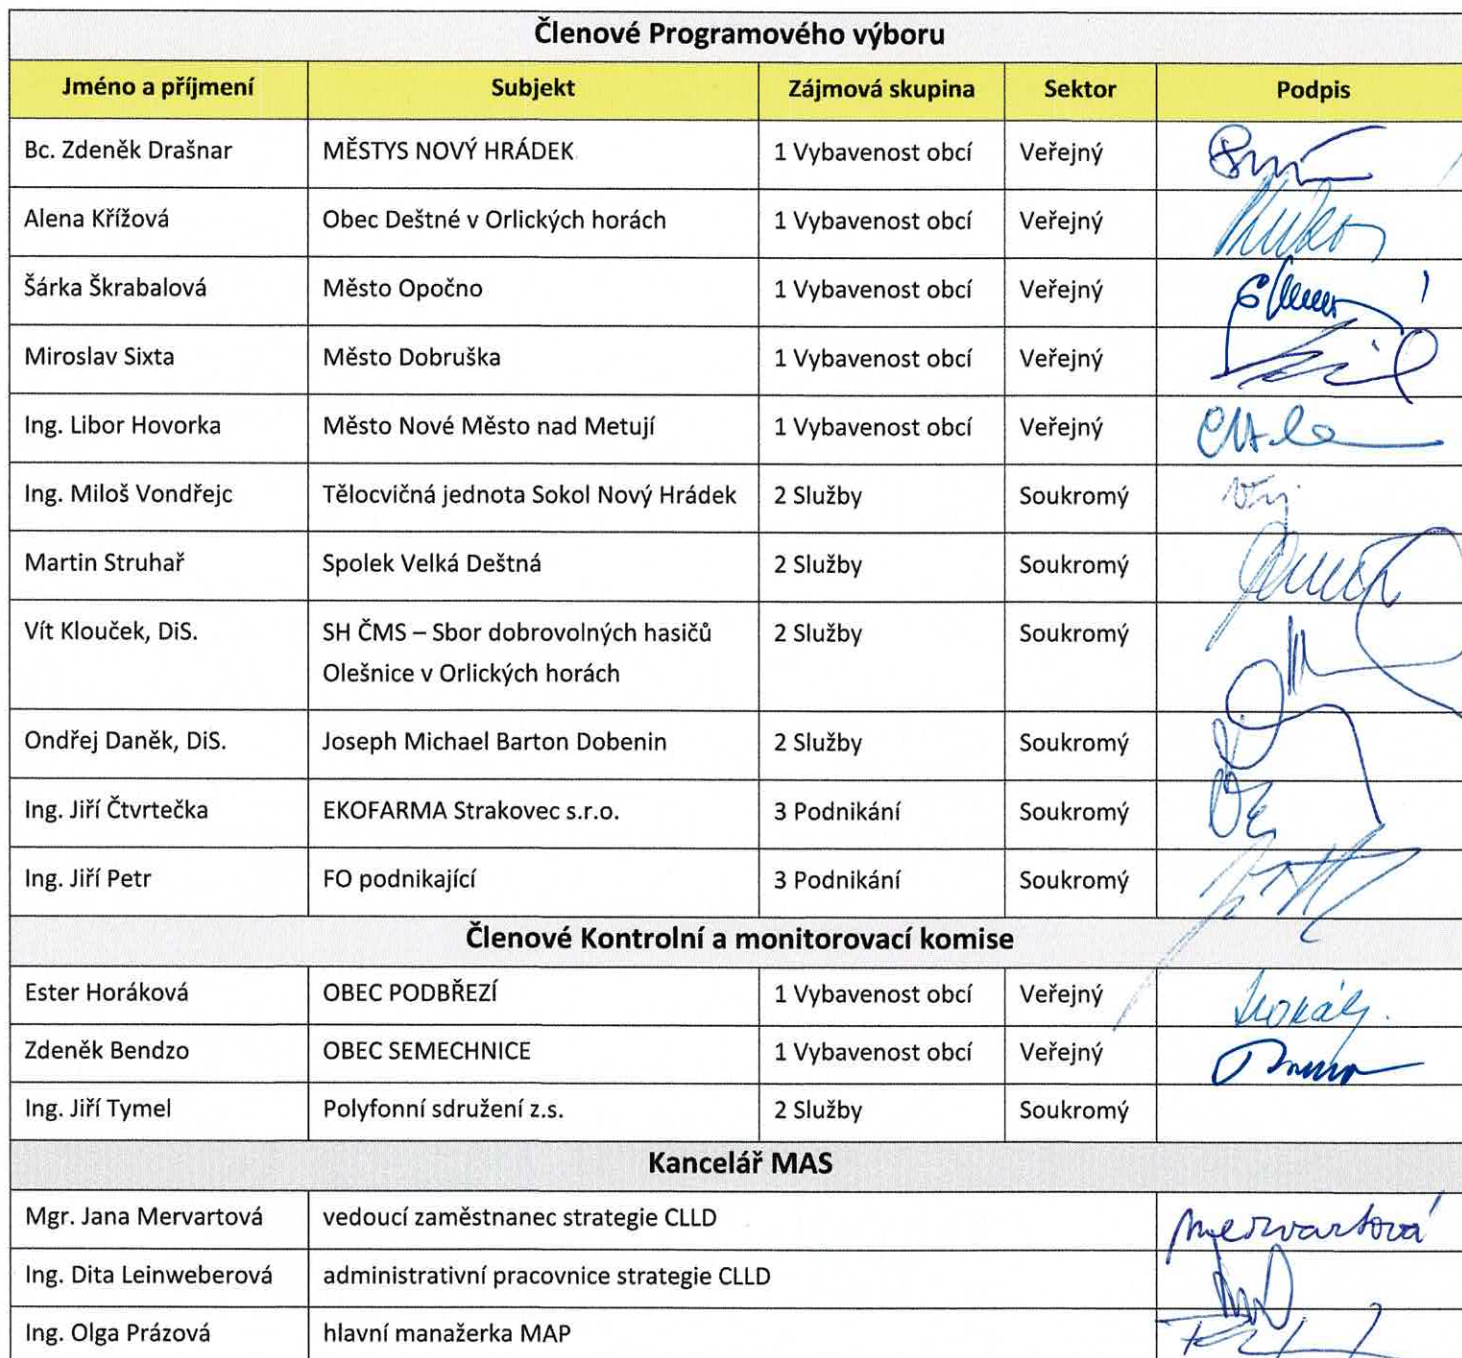 Členové Programového výboru
Jméno a příjmení Subjekt Zájmová skupina Sektor Podpis
Bc. Zdeněk Drašnar MĚSTYS NOVÝ HRÁDEK 1 Vybavenost obcí Veřejný
Alena Křížová Obec Deštné v Orlických horách 1 Vybavenost obcí Veřejný
Šárka Škrabalová Město Opočno 1 Vybavenost obcí Veřejný
Miroslav Sixta Město Dobruška 1 Vybavenost obcí Veřejný
Ing. Libor Hovorka Město Nové Město nad Metují 1 Vybavenost obcí Veřejný
Ing. Miloš Vondřejc Tělocvičná jednota Sokol Nový Hrádek 2 Služby Soukromý
Martin Struhař Spolek Velká Deštná 2 Služby Soukromý
Vít Klouček, DiS. SH ČMS – Sbor dobrovolných hasičů 2 Služby Soukromý
Olešnice v Orlických horách
Ondřej Daněk, DiS. Joseph Michael Barton Dobenin 2 Služby Soukromý
Ing. Jiří Čtvrtečka EKOFARMA Strakovec s.r.o. 3 Podnikání Soukromý
Ing. Jiří Petr FO podnikající 3 Podnikání Soukromý
Členové Kontrolní a monitorovací komise
Ester Horáková OBEC PODBŘEZÍ 1 Vybavenost obcí Veřejný
Zdeněk Bendzo OBEC SEMECHNICE 1 Vybavenost obcí Veřejný
Ing. Jiří Tymel Polyfonní sdružení z.s. 2 Služby Soukromý
Kancelář MAS
Mgr. Jana Mervartová vedoucí zaměstnanec strategie CLLD Mervartová
Ing. Dita Leinweberová administrativní pracovnice strategie CLLD
Ing. Olga Prázová hlavní manažerka MAP